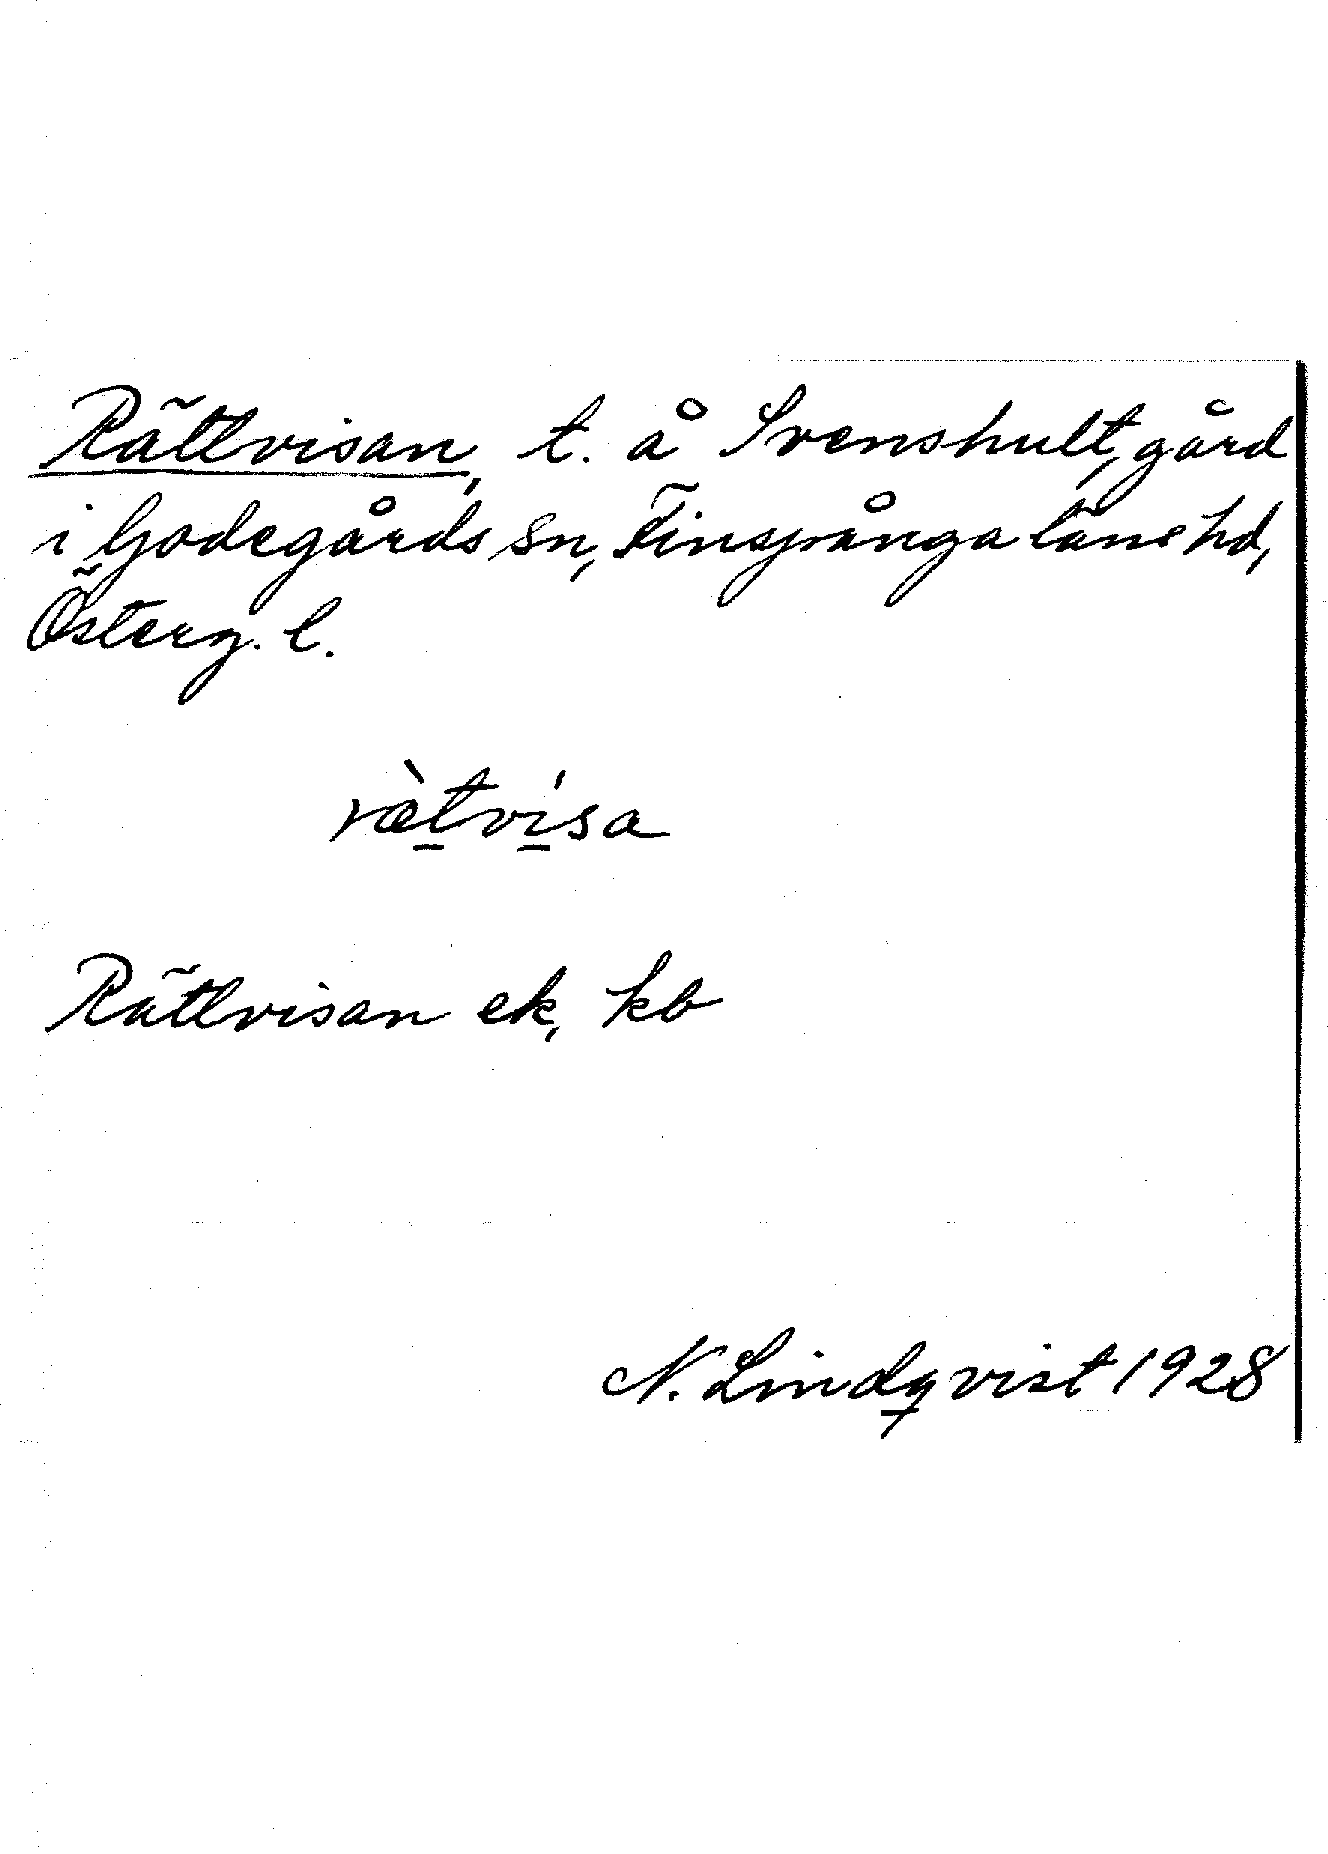 Rättvisan, t. å Svenshult, gård
i Godegårds sn, Finspånga läns hd,
Österg. l.
rætvisa
Rättvisan ek, kb
N. Lindqvist 1928